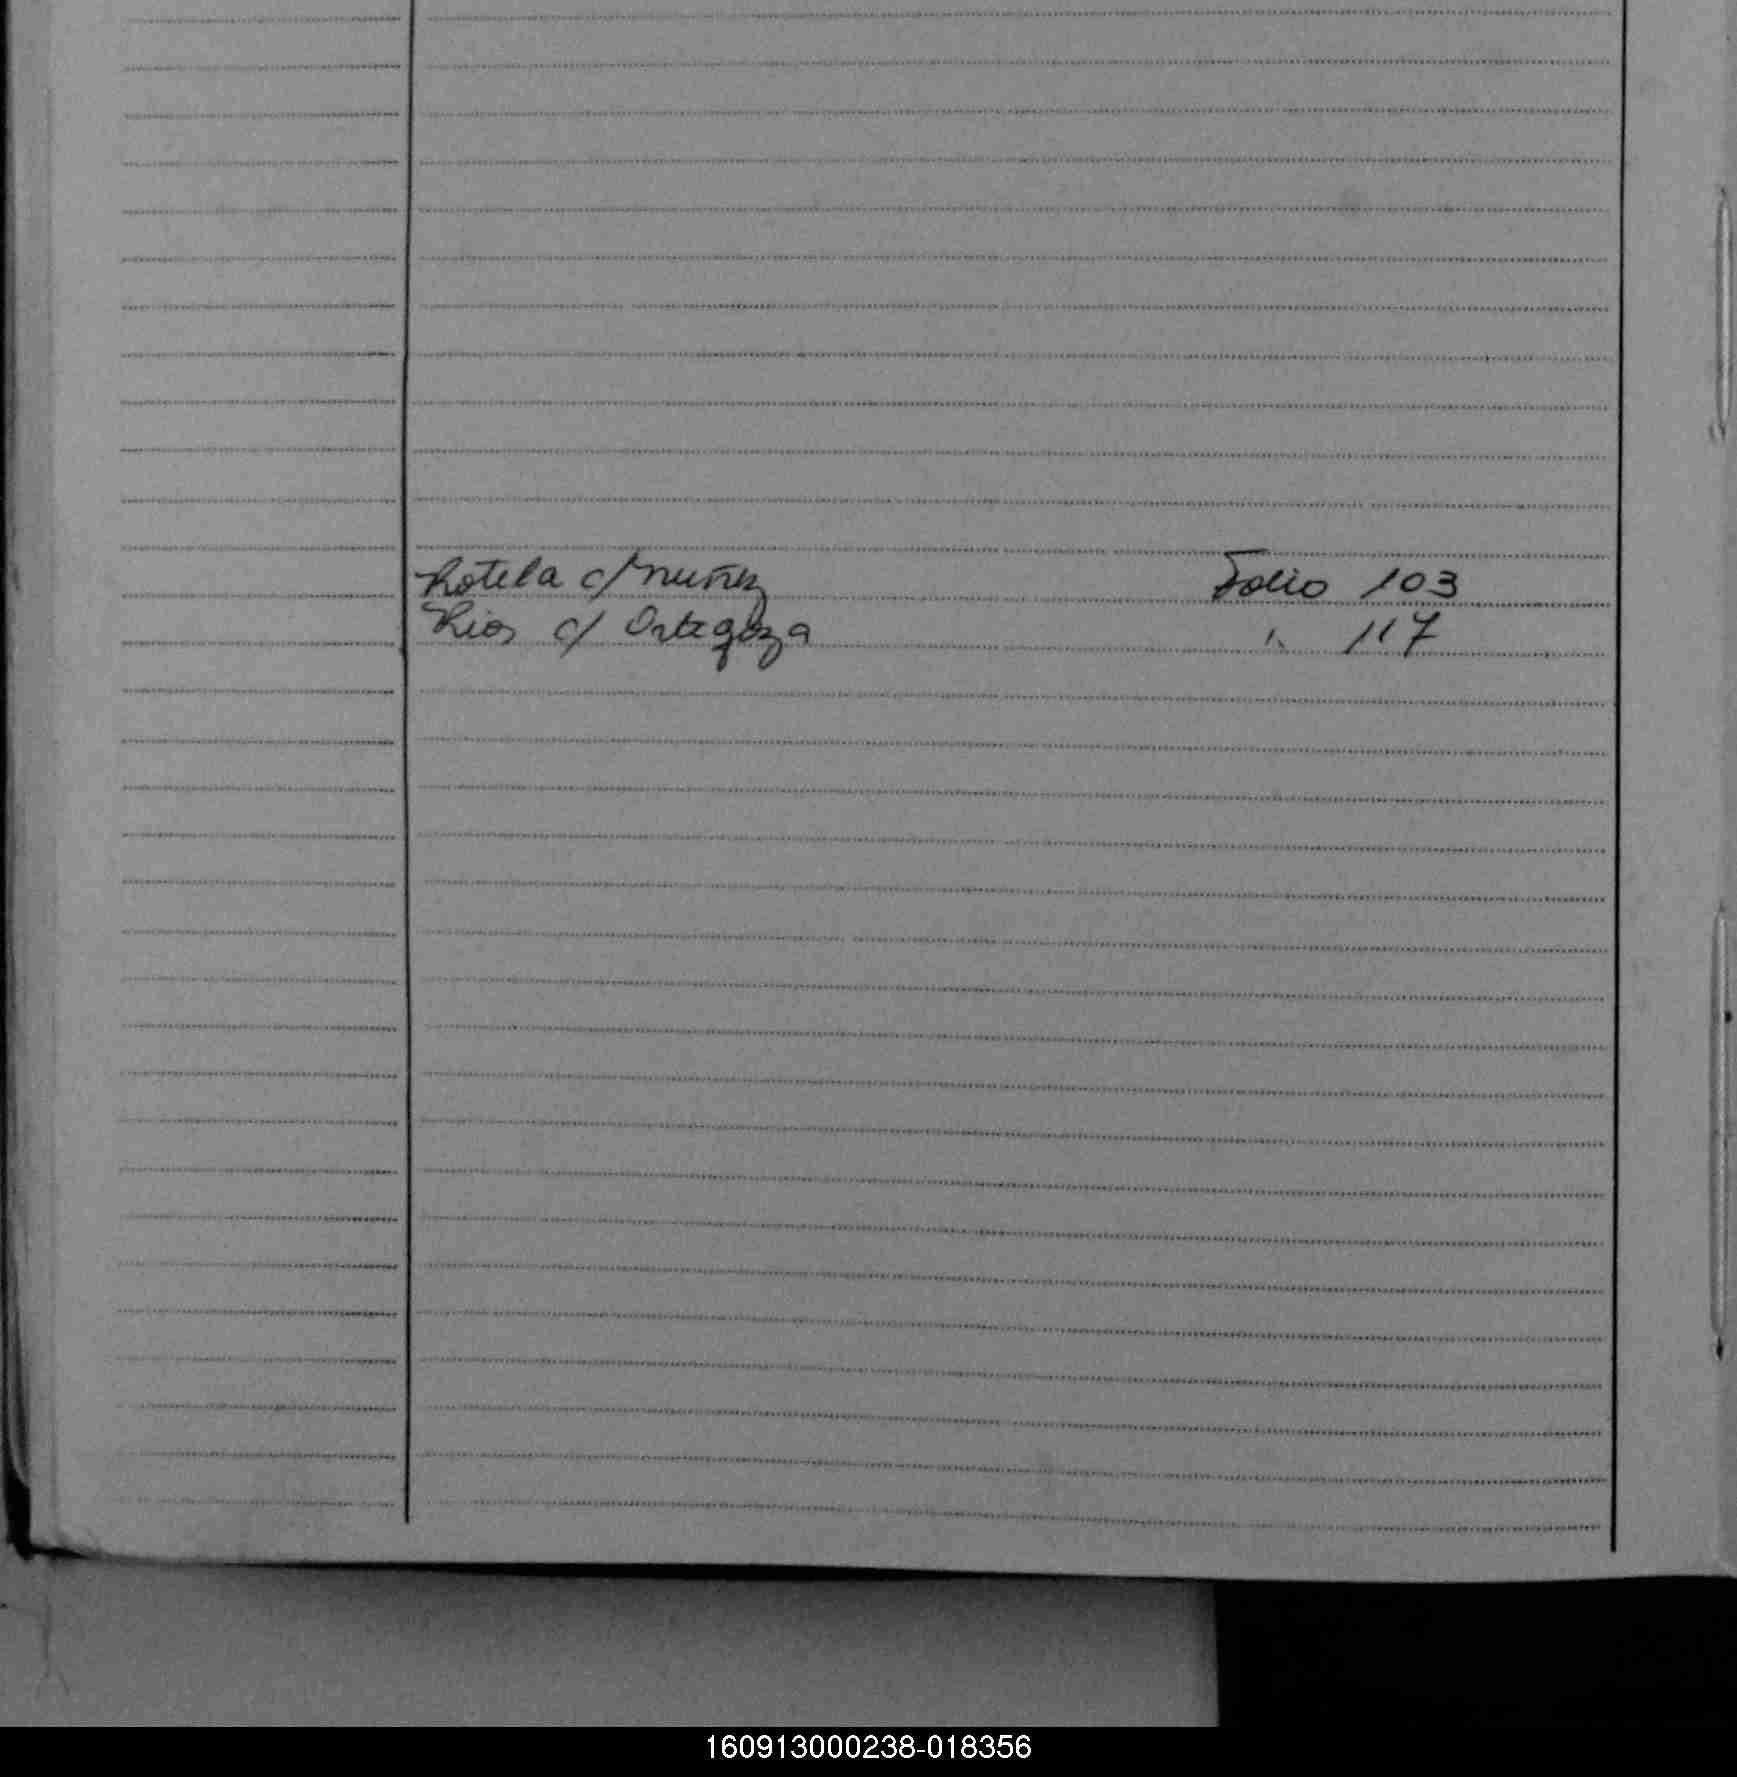 Rotela c/ Nuñez Folio 103
Rios c/ Ortegoza " 117
160913000238-018356